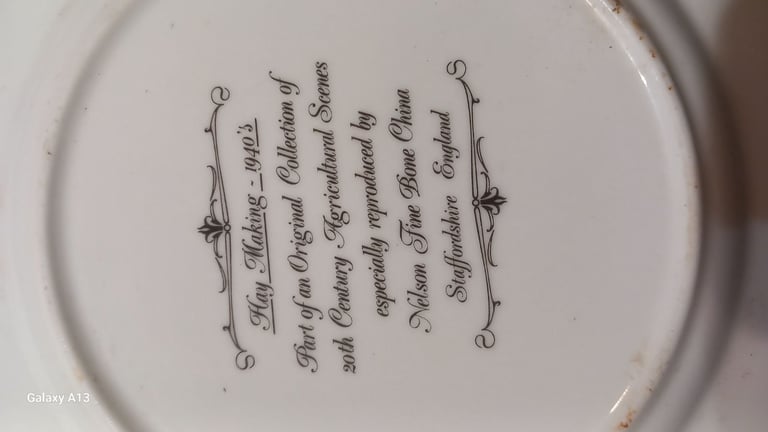 Hay Making - 1940's
Part of an Original Collection of
20th Century Agricultural Scenes
especially reproduced by
Nelson Fine Bone China
Staffordshire England
Galaxy A13